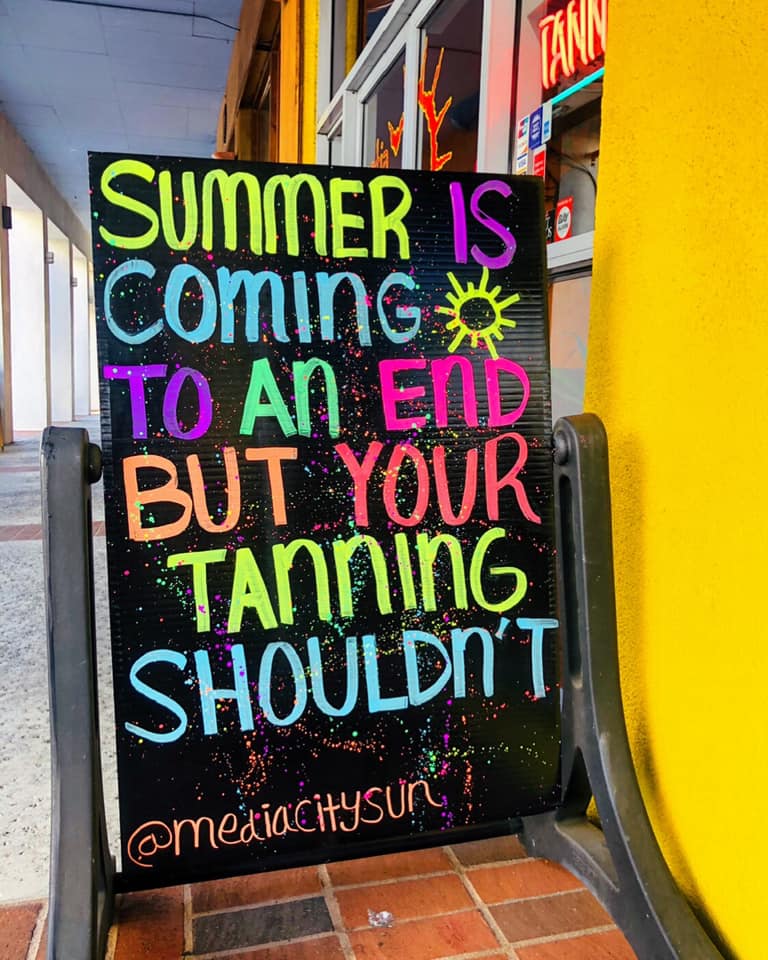 TANN
SUMMER IS
COMING
TO AN END
BUT YOUR
TANNING
SHOULDN'T
@mediacitysun